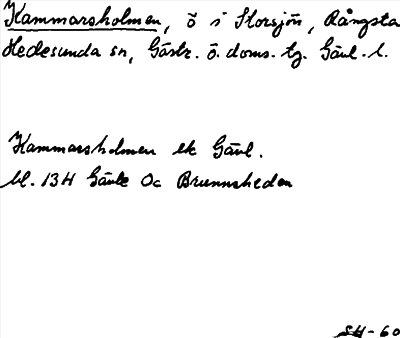 Kammarsholmen, ö i Storsjön, Rångsta
Hedesunda sn, Gästr. ö. doms. tg. Gävl. l.
Kammarsholmen ek Gävl.
bl. 13H Gävle Oc Brunnsheden
SH-60